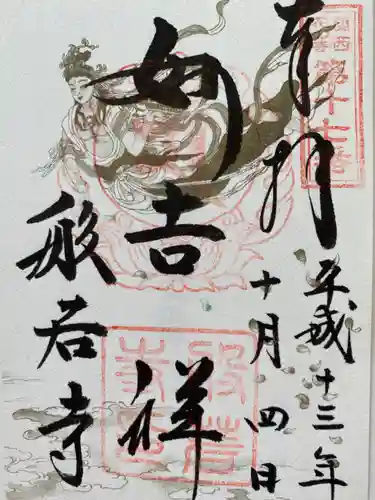 奉拝
平成十三年
十月四日
妙吉祥
般若寺
関西
第十七番
般若寺